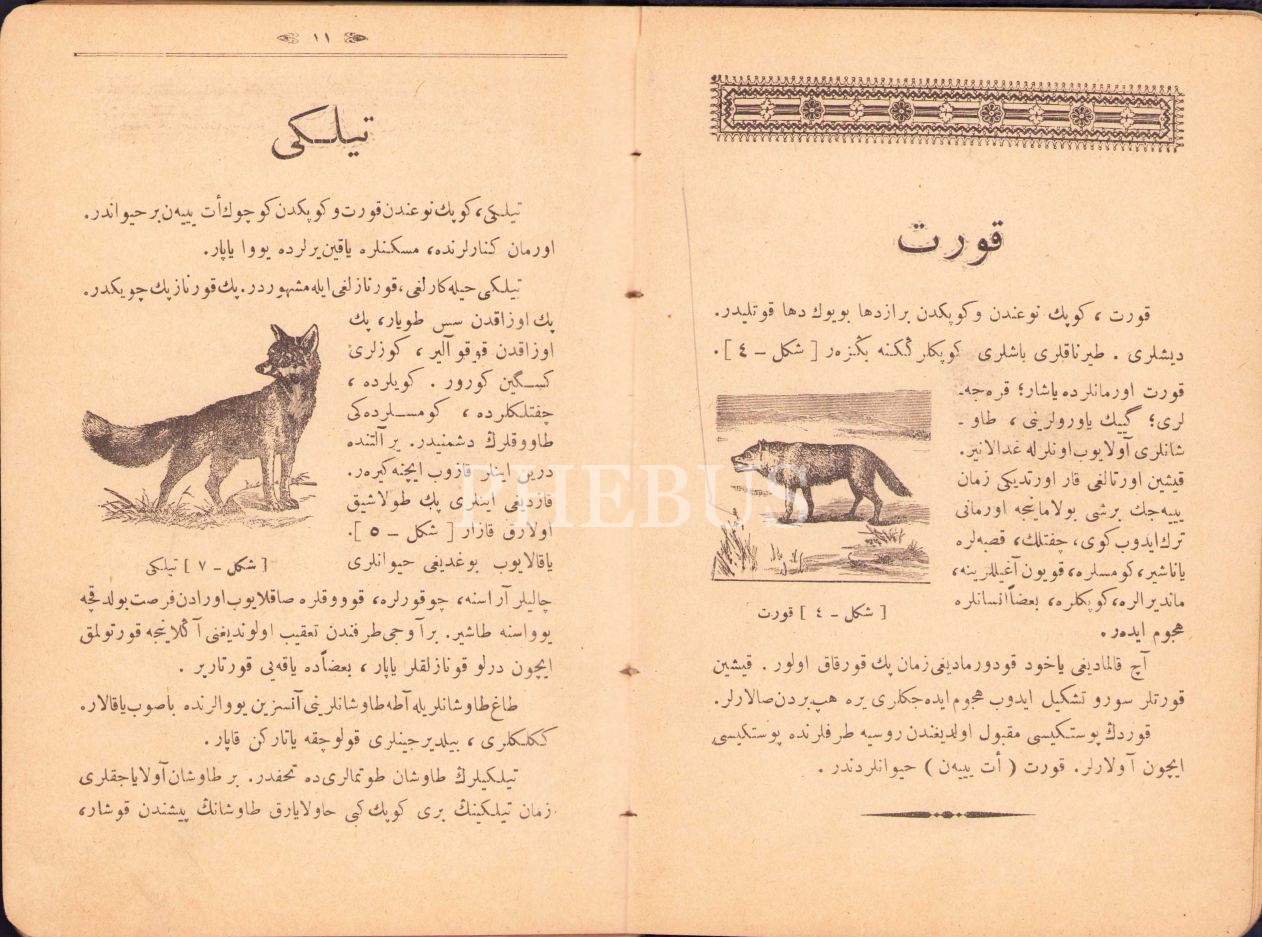 قورت
قورت ، كوپك نوعندن وكوپكدن بر از دها بويوك دها قوتليدر.
ديشلرى . طيرناقلرى باشلرى كوپكلرڭكنه بڭزەر [ شكل ــ ٤ ].
قورت اورمانلرده ياشار؛ قره‌جه‌ـ
لرى؛ گييك ياورولرينى ، طاو ـ
شانلرى آولايوب اونلرله غدالانير.
قيشين اورتالغى قار اورتديكى زمان
ييه‌جك برشى بولاماينجه اورمانى
ترك ايدوب كوى، چفتلك، قصبه‌لره
ياناشير، كومسلره، قويون آغيللرينه،
مانديرالره، كوپكلره، بعضاً انسانلره
هجوم ايدەر.
[ شكل ــ ٤ ] قورت
آچ قالماديغى ياخود قودورماديغى زمان پك قورقاق اولور . قيشين
قورتلر سورو تشكيل ايدوب هجوم ايده‌جكلرى يره هپ بردن صالارلر.
قوردڭ پوستكيسى مقبول اولديغندن روسيه طرفلرنده پوستكيسى
ايچون آولارلر. قورت ( أت ييەن ) حيوانلردندر .
١١
تيلكى
تيلكى، كوپك نوعندن قورت وكوپكدن كوچوك أت ييەن بر حيواندر.
اورمان كنارلرنده، مسكنلره ياقين يرلرده يووا ياپار.
تيلكى حيله‌كارلغى، قورنازلغى ايله مشهوردر. پك قورناز پك چويكدر.
پك اوزاقدن سس طويار، پك
اوزاقدن قوقو آلير ، كوزلرى
كسگين كورور . كويلرده ،
چفتلكلرده ، كومسلرده‌كى
طاووقلرڭ دشمنيدر. ير آلتنده
درين اينلر قازوب ايچنه كيرەر.
قازديغى اينلرى پك طولاشيق
اولارق قازار [ شكل ــ ٥ ].
ياقالايوب بوغديغى حيوانلرى
[ شكل ــ ٧ ] تيلكى
چاليلر آراسنه، چوقورلره، قوووقلره صاقلايوب اورادن فرصت بولدقچه
يوواسنه طاشير. بر آوجى طرفندن تعقيب اولونديغنى آڭلاينجه قورتولمق
ايچون درلو قونازلقلر ياپار ، بعضاً ده ياقه‌يى قورتارير .
طاغ طاوشانلريله آطه طاوشانلرينى آنسزين يووالرنده باصوب ياقالار.
ككلكلرى ، بيلديرجينلرى قولوچقه ياتاركن قاپار.
تيلكيلرڭ طاوشان طوتمالرى ده تحفدر. بر طاوشان آولاياجقلرى
زمان تيلكينڭ برى كوپك كبى حاولايارق طاوشانڭ پيشندن قوشار،
PHEBUS